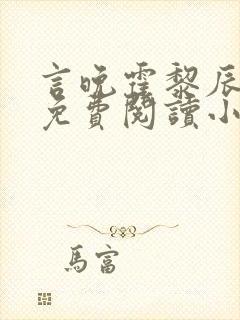 言晚霆黎辰
免費閱讀小
馬富